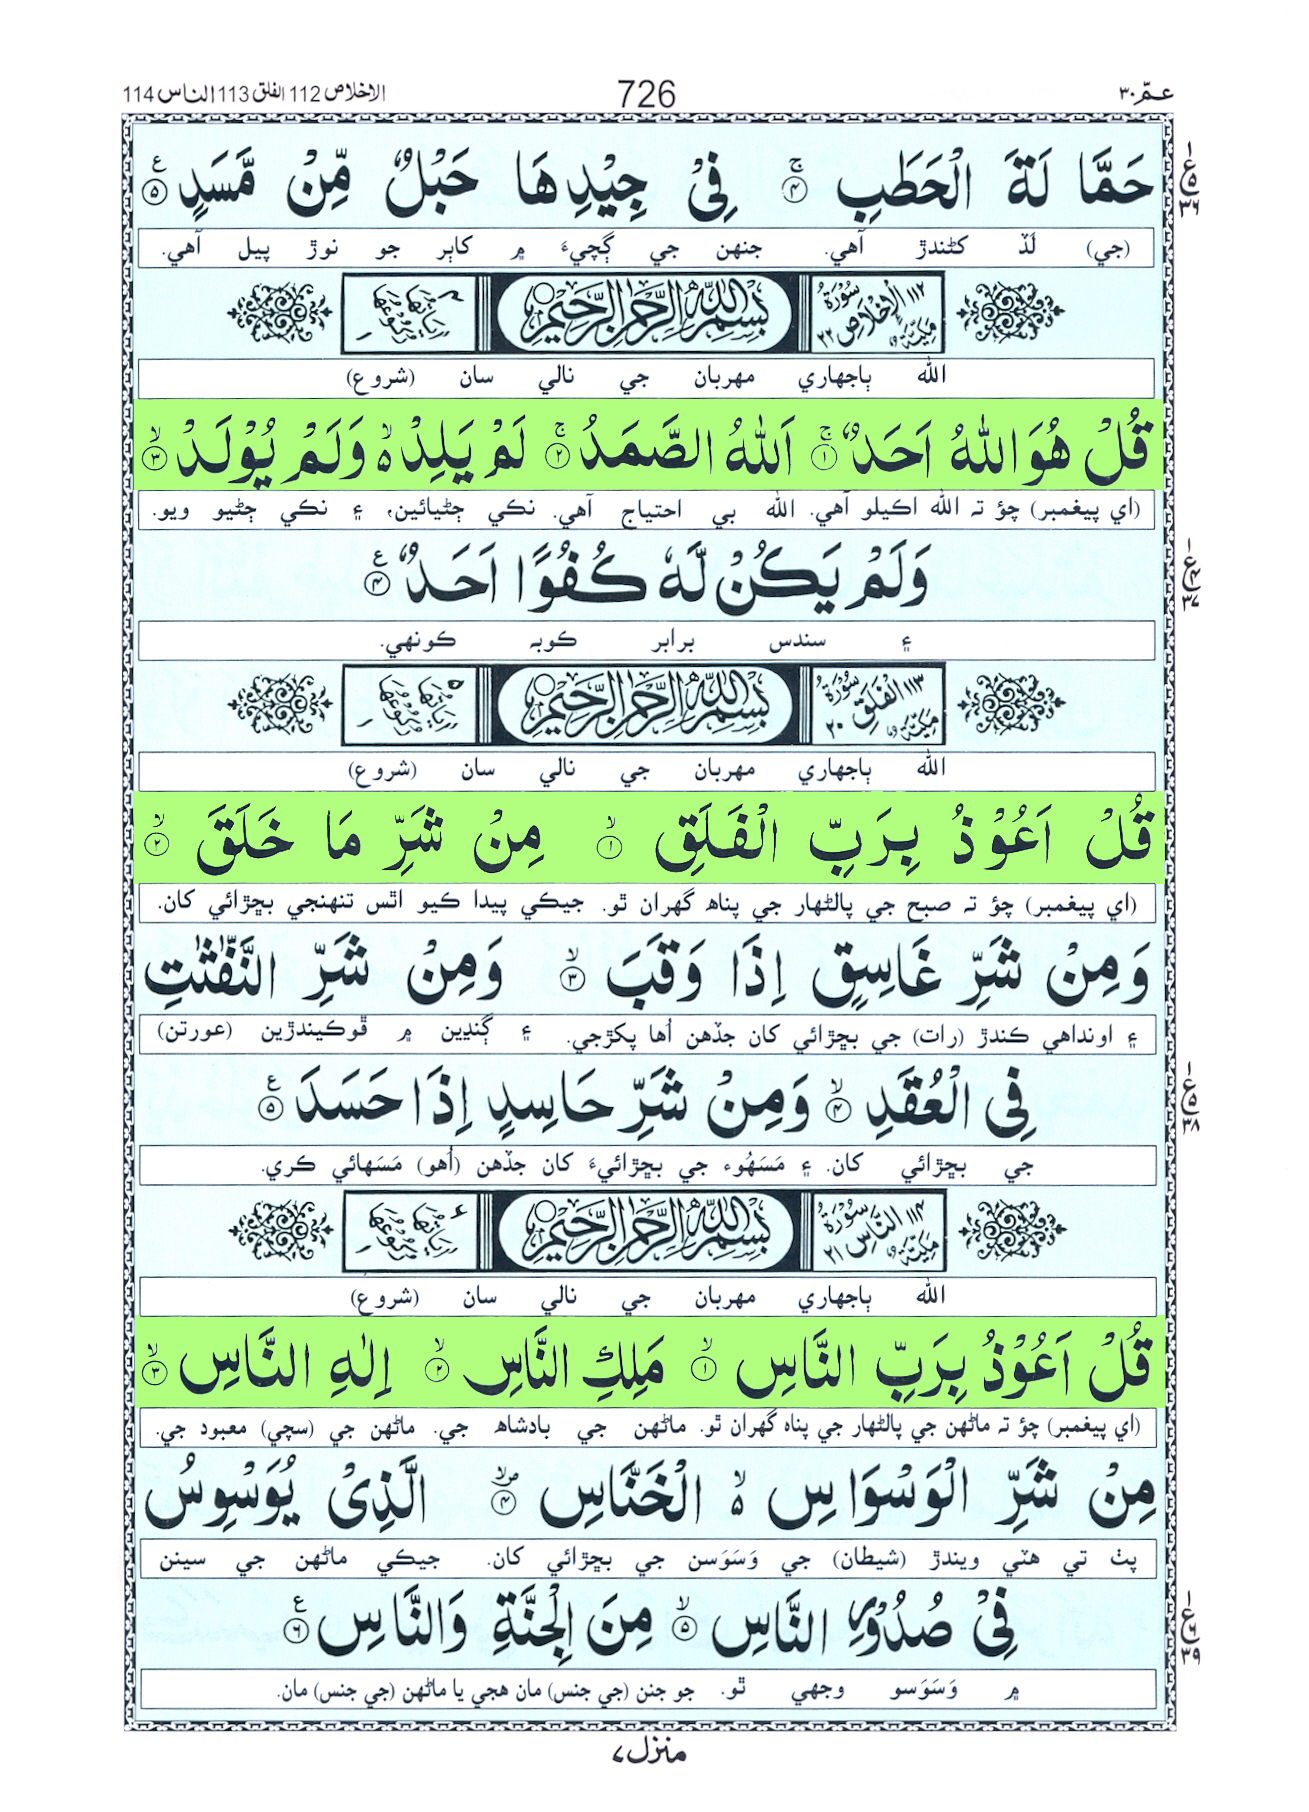 عمّ ٣٠ 726 الاخلاص 112 الفلق 113 الناس 114
حَمَّا لَةَ الْحَطَبِ ۚ۝٤ فِىْ جِيْدِهَا حَبْلٌ مِّنْ مَّسَدٍ ۝٥
(جي) لَڏ کڻندڙ آهي. جنهن جي ڳچيءَ ۾ کاٻر جو نوڙ پيل آهي.
سُوْرَةُ الْاِخْلَاصِ مَكِّيَّةٌ ١١٢ ٢٢ بِسْمِ اللّٰهِ الرَّحْمٰنِ الرَّحِيْمِ اٰيَاتُهَا ٤ رُكُوْعُهَا ١
الله ٻاجهاري مهربان جي نالي سان (شروع)
قُلْ هُوَ اللّٰهُ اَحَدٌ ۚ۝١ اَللّٰهُ الصَّمَدُ ۚ۝٢ لَمْ يَلِدْ ۙ وَلَمْ يُوْلَدْ ۙ۝٣
(اي پيغمبر) چؤ تہ الله اڪيلو آهي. الله بي احتياج آهي. نڪي ڄڻيائين، ۽ نڪي ڄڻيو ويو.
وَلَمْ يَكُنْ لَّهٗ كُفُوًا اَحَدٌ ۝٤
۽ سندس برابر ڪوبہ ڪونهي.
سُوْرَةُ الْفَلَقِ مَكِّيَّةٌ ١١٣ ٢٠ بِسْمِ اللّٰهِ الرَّحْمٰنِ الرَّحِيْمِ اٰيَاتُهَا ٥ رُكُوْعُهَا ١
الله ٻاجهاري مهربان جي نالي سان (شروع)
قُلْ اَعُوْذُ بِرَبِّ الْفَلَقِ ۙ۝١ مِنْ شَرِّ مَا خَلَقَ ۙ۝٢
(اي پيغمبر) چؤ تہ صبح جي پالڻهار جي پناهہ گهران ٿو. جيڪي پيدا ڪيو اٿس تنهنجي بڇڙائي کان.
وَمِنْ شَرِّ غَاسِقٍ اِذَا وَقَبَ ۙ۝٣ وَمِنْ شَرِّ النَّفّٰثٰتِ
۽ اونداهي ڪندڙ (رات) جي بڇڙائي کان جڏهن اُها پکڙجي. ۽ ڳنڍين ۾ ڦوڪيندڙين (عورتن)
فِى الْعُقَدِ ۙ۝٤ وَمِنْ شَرِّ حَاسِدٍ اِذَا حَسَدَ ۝٥
جي بڇڙائي کان. ۽ مَسَهُوء جي بڇڙائيءَ کان جڏهن (اُهو) مَسَهائي ڪري.
سُوْرَةُ النَّاسِ مَكِّيَّةٌ ١١٤ ٢١ بِسْمِ اللّٰهِ الرَّحْمٰنِ الرَّحِيْمِ اٰيَاتُهَا ٦ رُكُوْعُهَا ١
الله ٻاجهاري مهربان جي نالي سان (شروع)
قُلْ اَعُوْذُ بِرَبِّ النَّاسِ ۙ۝١ مَلِكِ النَّاسِ ۙ۝٢ اِلٰهِ النَّاسِ ۙ۝٣
(اي پيغمبر) چؤ تہ ماڻهن جي پالڻهار جي پناهہ گهران ٿو. ماڻهن جي بادشاهہ جي. ماڻهن جي (سچي) معبود جي.
مِنْ شَرِّ الْوَسْوَاسِ ۙ الْخَنَّاسِ ۪ۙ۝٤ الَّذِىْ يُوَسْوِسُ
پٺ تي هٽي ويندڙ (شيطان) جي وَسَوَسن جي بڇڙائي کان. جيڪي ماڻهن جي سينن
فِىْ صُدُوْرِ النَّاسِ ۙ۝٥ مِنَ الْجِنَّةِ وَالنَّاسِ ۝٦
۾ وَسَوَسو وجهي ٿو. جو جنن (جي جنس) مان هجي يا ماڻهن (جي جنس) مان.
منزل ٧